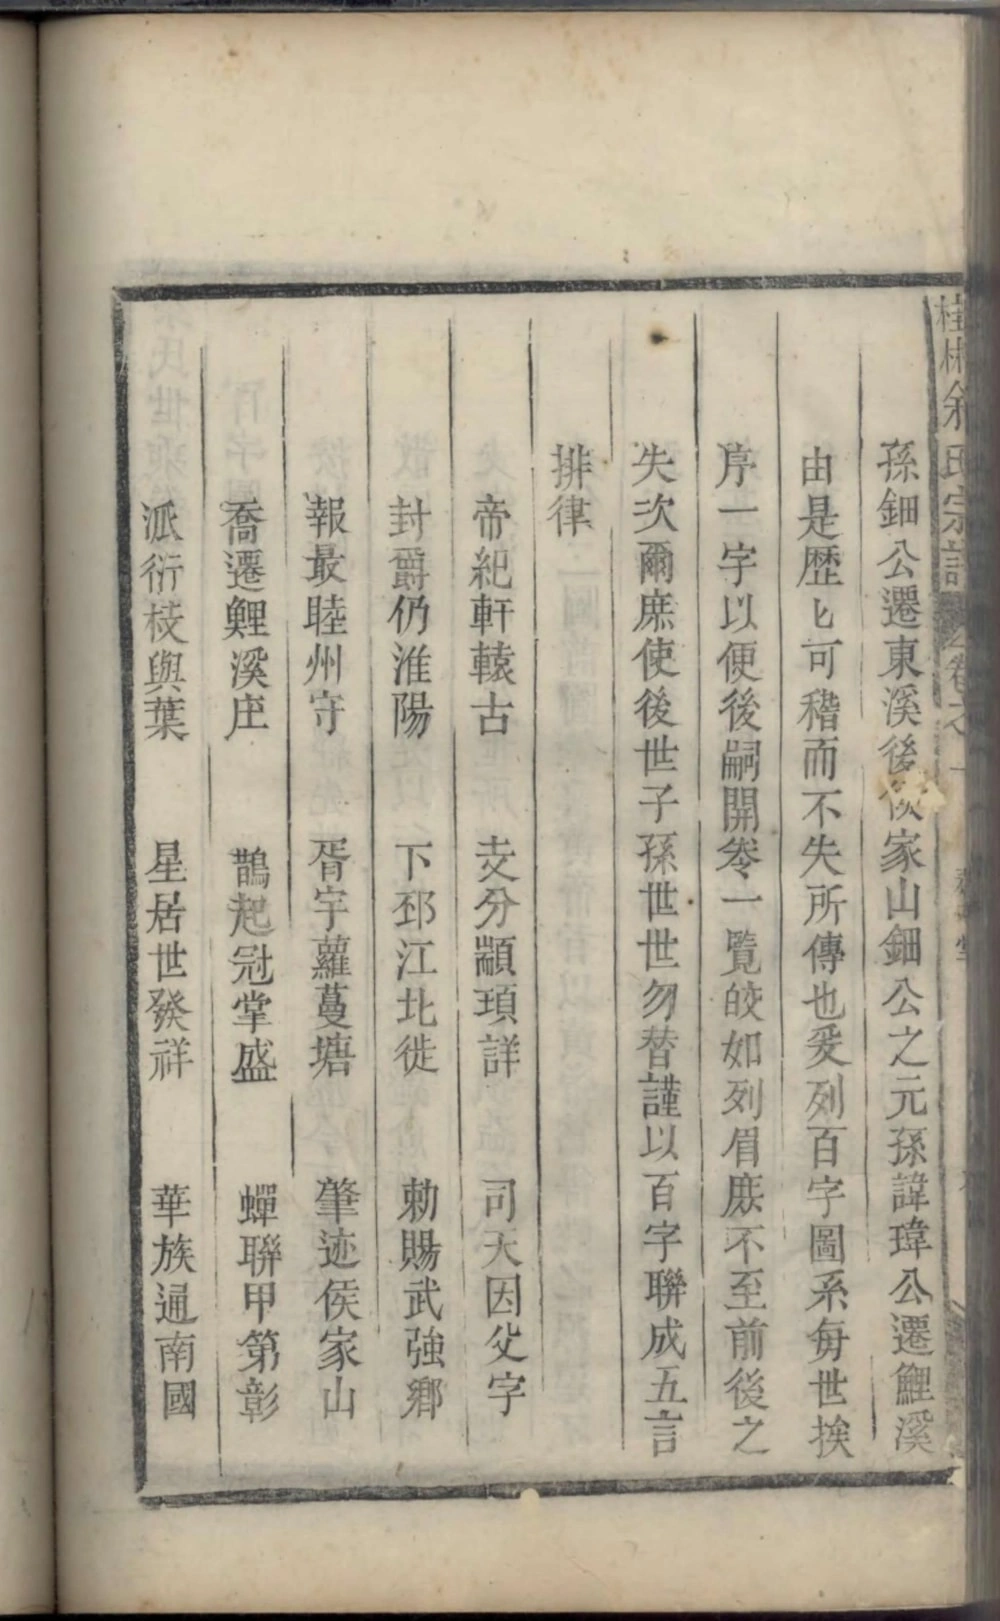 桂林余氏宗譜 卷之一
孫鈿公遷東溪後侯家山鈿公之元孫諱瑋公遷鯉溪
由是歷匕可稽而不失所傳也爰列百字圖系每世挨
序一字以便後嗣開卷一覽皎如列眉庶不至前後之
失次爾庶使後世子孫世世勿替謹以百字聯成五言
排律
帝紀軒轅古 支分顓頊詳 司天因父字
封爵仍淮陽 下邳江北徙 勅賜武強鄉
報最睦州守 胥宇蘿蔓塘 肇迹侯家山
喬遷鯉溪庄 鵲起冠掌盛 蟬聯甲第彰
派衍枝與葉 星居世發祥 華族通南國